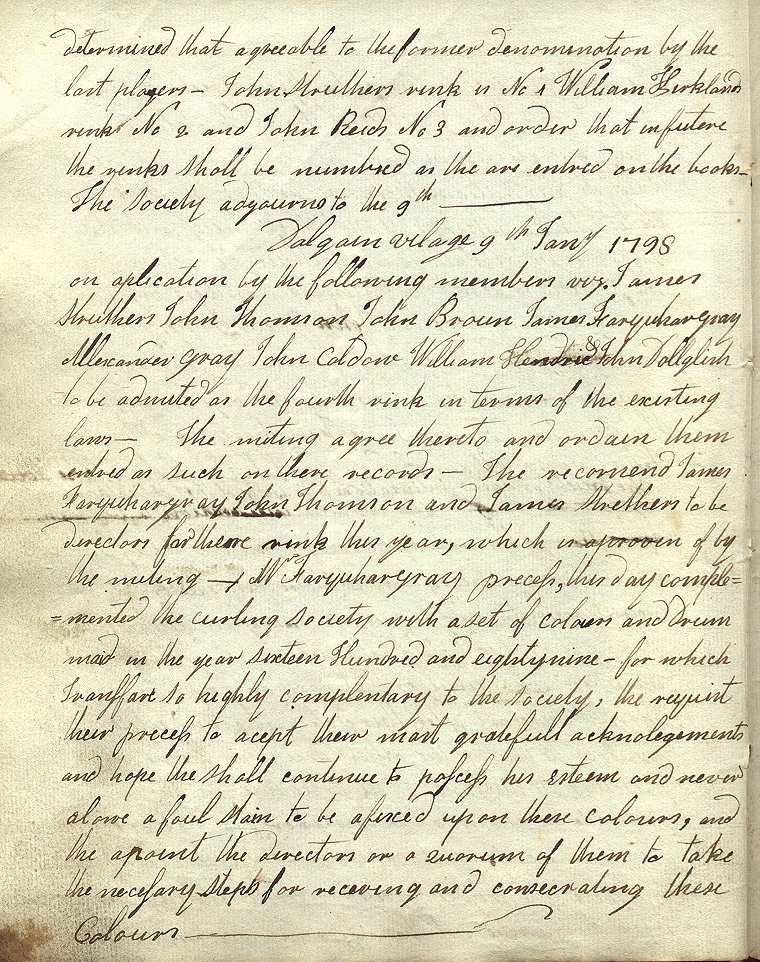 determined that agreeable to the former denomination by the
last players – John Struthers rink is No 1 William Kirklands
rink No 2 and John Reids No 3 and order that in futere
the rinks shall be numbred as the are entred on the books –
The Society adjourns to the 9th
Dalgain vilage 9th Jany 1798
on aplication by the following members viz. James
Struthers John Thomson John Broun James Farquhargray
Allexander Gray John Coldow William Hendrie & John Dollglish
to be admited as the fourth rink in terms of the existing
laws – The miting agree thereto and ordain them
entred as such on there records – The recomend James
Farquhargray John Thomson and James Struthers to be
directors for there rink this year, which is aproven of by
the miting – Mr Farquhargray precess, this day comple=
=mented the curling society with a set of colours and Drum
maid in the year sixteen Hundred and eightynine – for which
Transfare so highly complentary to the society, the requist
their precess to acept their most gratefull acknolegements
and hope the shall continue to possess his esteem and never
alowe a foul stain to be afixed upon these colours, and
the apoint the directors or a quorum of them to take
the necessary steps for receving and consecrating these
Colours